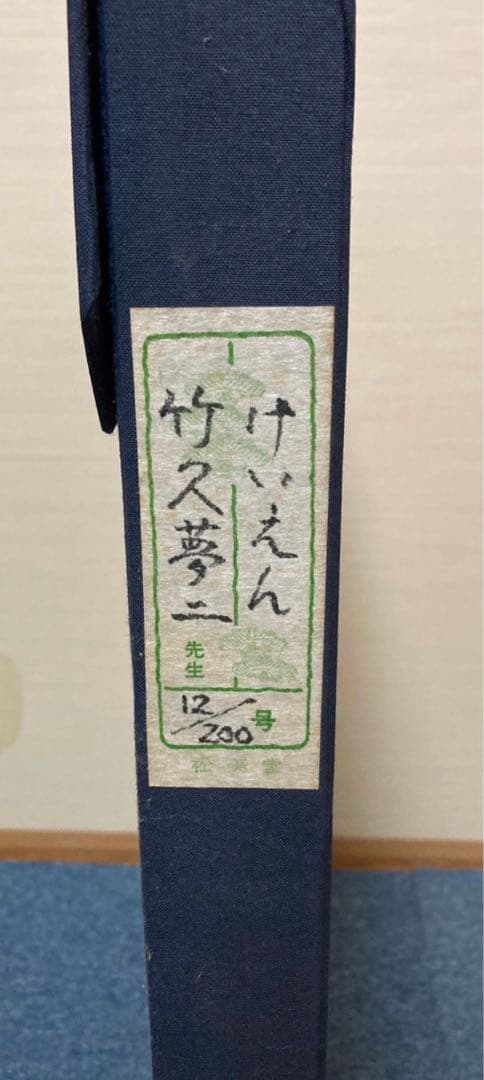 けいえん
竹久夢二
先生
12/200
号
松美堂